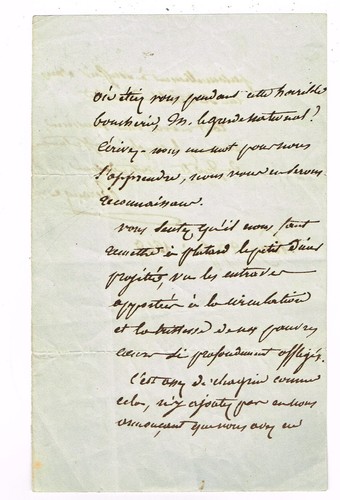 où étiez vous pendant cette horrible
boucherie, M. le garde national?
Écrivez-nous un mot pour nous
l'apprendre, nous vous en serons
reconnaissans.
Vous sentez qu'il nous faut
remettre à plutard le petit dîner
projetté, vu les entraves
apportées à la circulation
et la tristesse de nos pauvres
cœurs si profondément affligés.
C'est assez de chagrin comme
cela, n'y ajoutez pas en nous
annonçant que vous avez eu